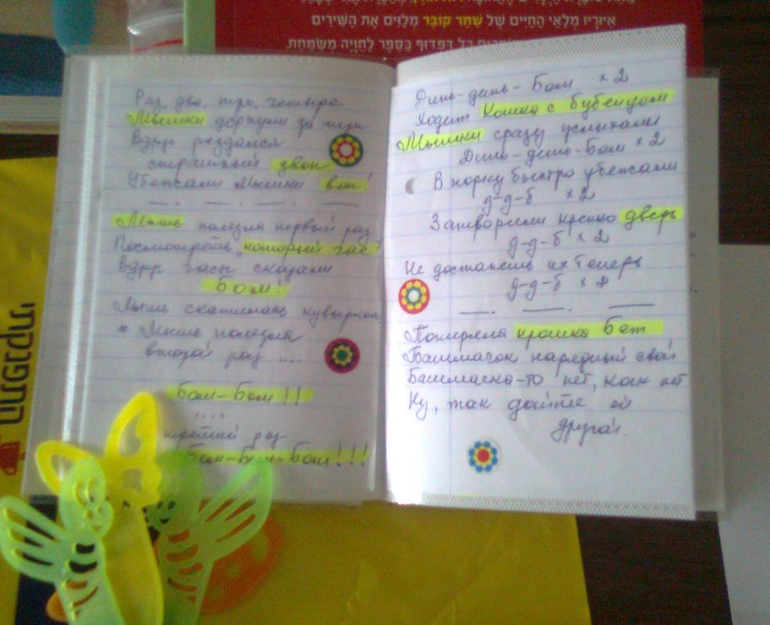 איוריו מלאי החיים של שחר קובר מלווים את השירים
כל דפדוף בספר לחויה משמחת
Раз, два, три, четыре
Мышки дернули за гири
Вдруг раздался
страшный звон
Убежали мышки вон!
Мышь полезла первый раз
Посмотреть, который час?
Вдруг часы сказали
Бом!
Мышь скатилась кувырком
* Мышь полезла
второй раз ....
Бом-Бом!!
....
третий раз
Бом-Бом-Бом!!!
Динь-динь-Бом x 2
Ходит Кошка с бубенцом
Мышки сразу услыхали
Динь-динь-Бом x 2
В норку быстро убежали
д-д-б x 2
Затворили крепко дверь
д-д-б x 2
Не достанешь их теперь
д-д-б x
Потеряла крошка Бет
Башмачок нарядный свой
Башмачка-то нет, как нет
Ну, так дайте ей
другой.